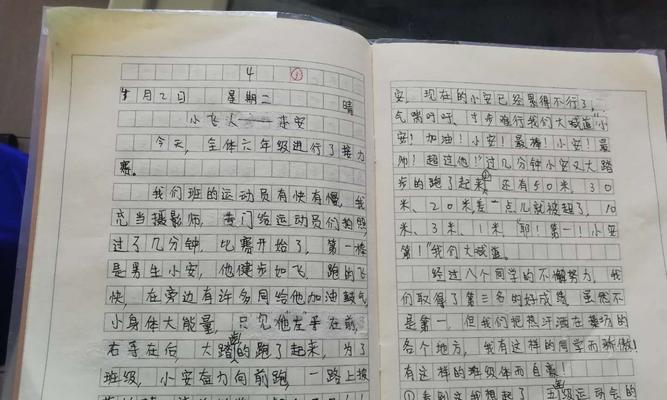 4 ①
月2日 星期二 晴
小飞人——李安
今天，全体六年级进行了接力
赛。
我们班的运动员有快有慢，我
充当摄影师，专门给运动员们拍照，
过了几分钟，比赛开始了，第一棒
是男生小安，他健步如飞，跑的飞
快，在旁边有许多同给他加油鼓气
小身体大能量，只见他左手在前，
右手在后，大踏步的跑了起来，为了
班级，小安奋力向前跑，一路上披
安，现在的小安已经累得不行了，
气喘吁吁，寸步难行我们大喊道"小
安！加油！小安！最棒！小安！最
帅！超过他！"过几分钟小安又大踏
步的跑了起来，还有50米、30
米、20米差一点儿就被超了，10
米、3米、1米，"耶！第一！小安
第一！"我们大喊道。
经过八个同学的不懈努力，我
们取得了第三名的好成绩，虽然不
是第一，但我们把热汗洒在操场的
各个地方，我有这样的同学而骄傲！
有这样的班级体而自豪！
①看到这我想起了五级运动会的